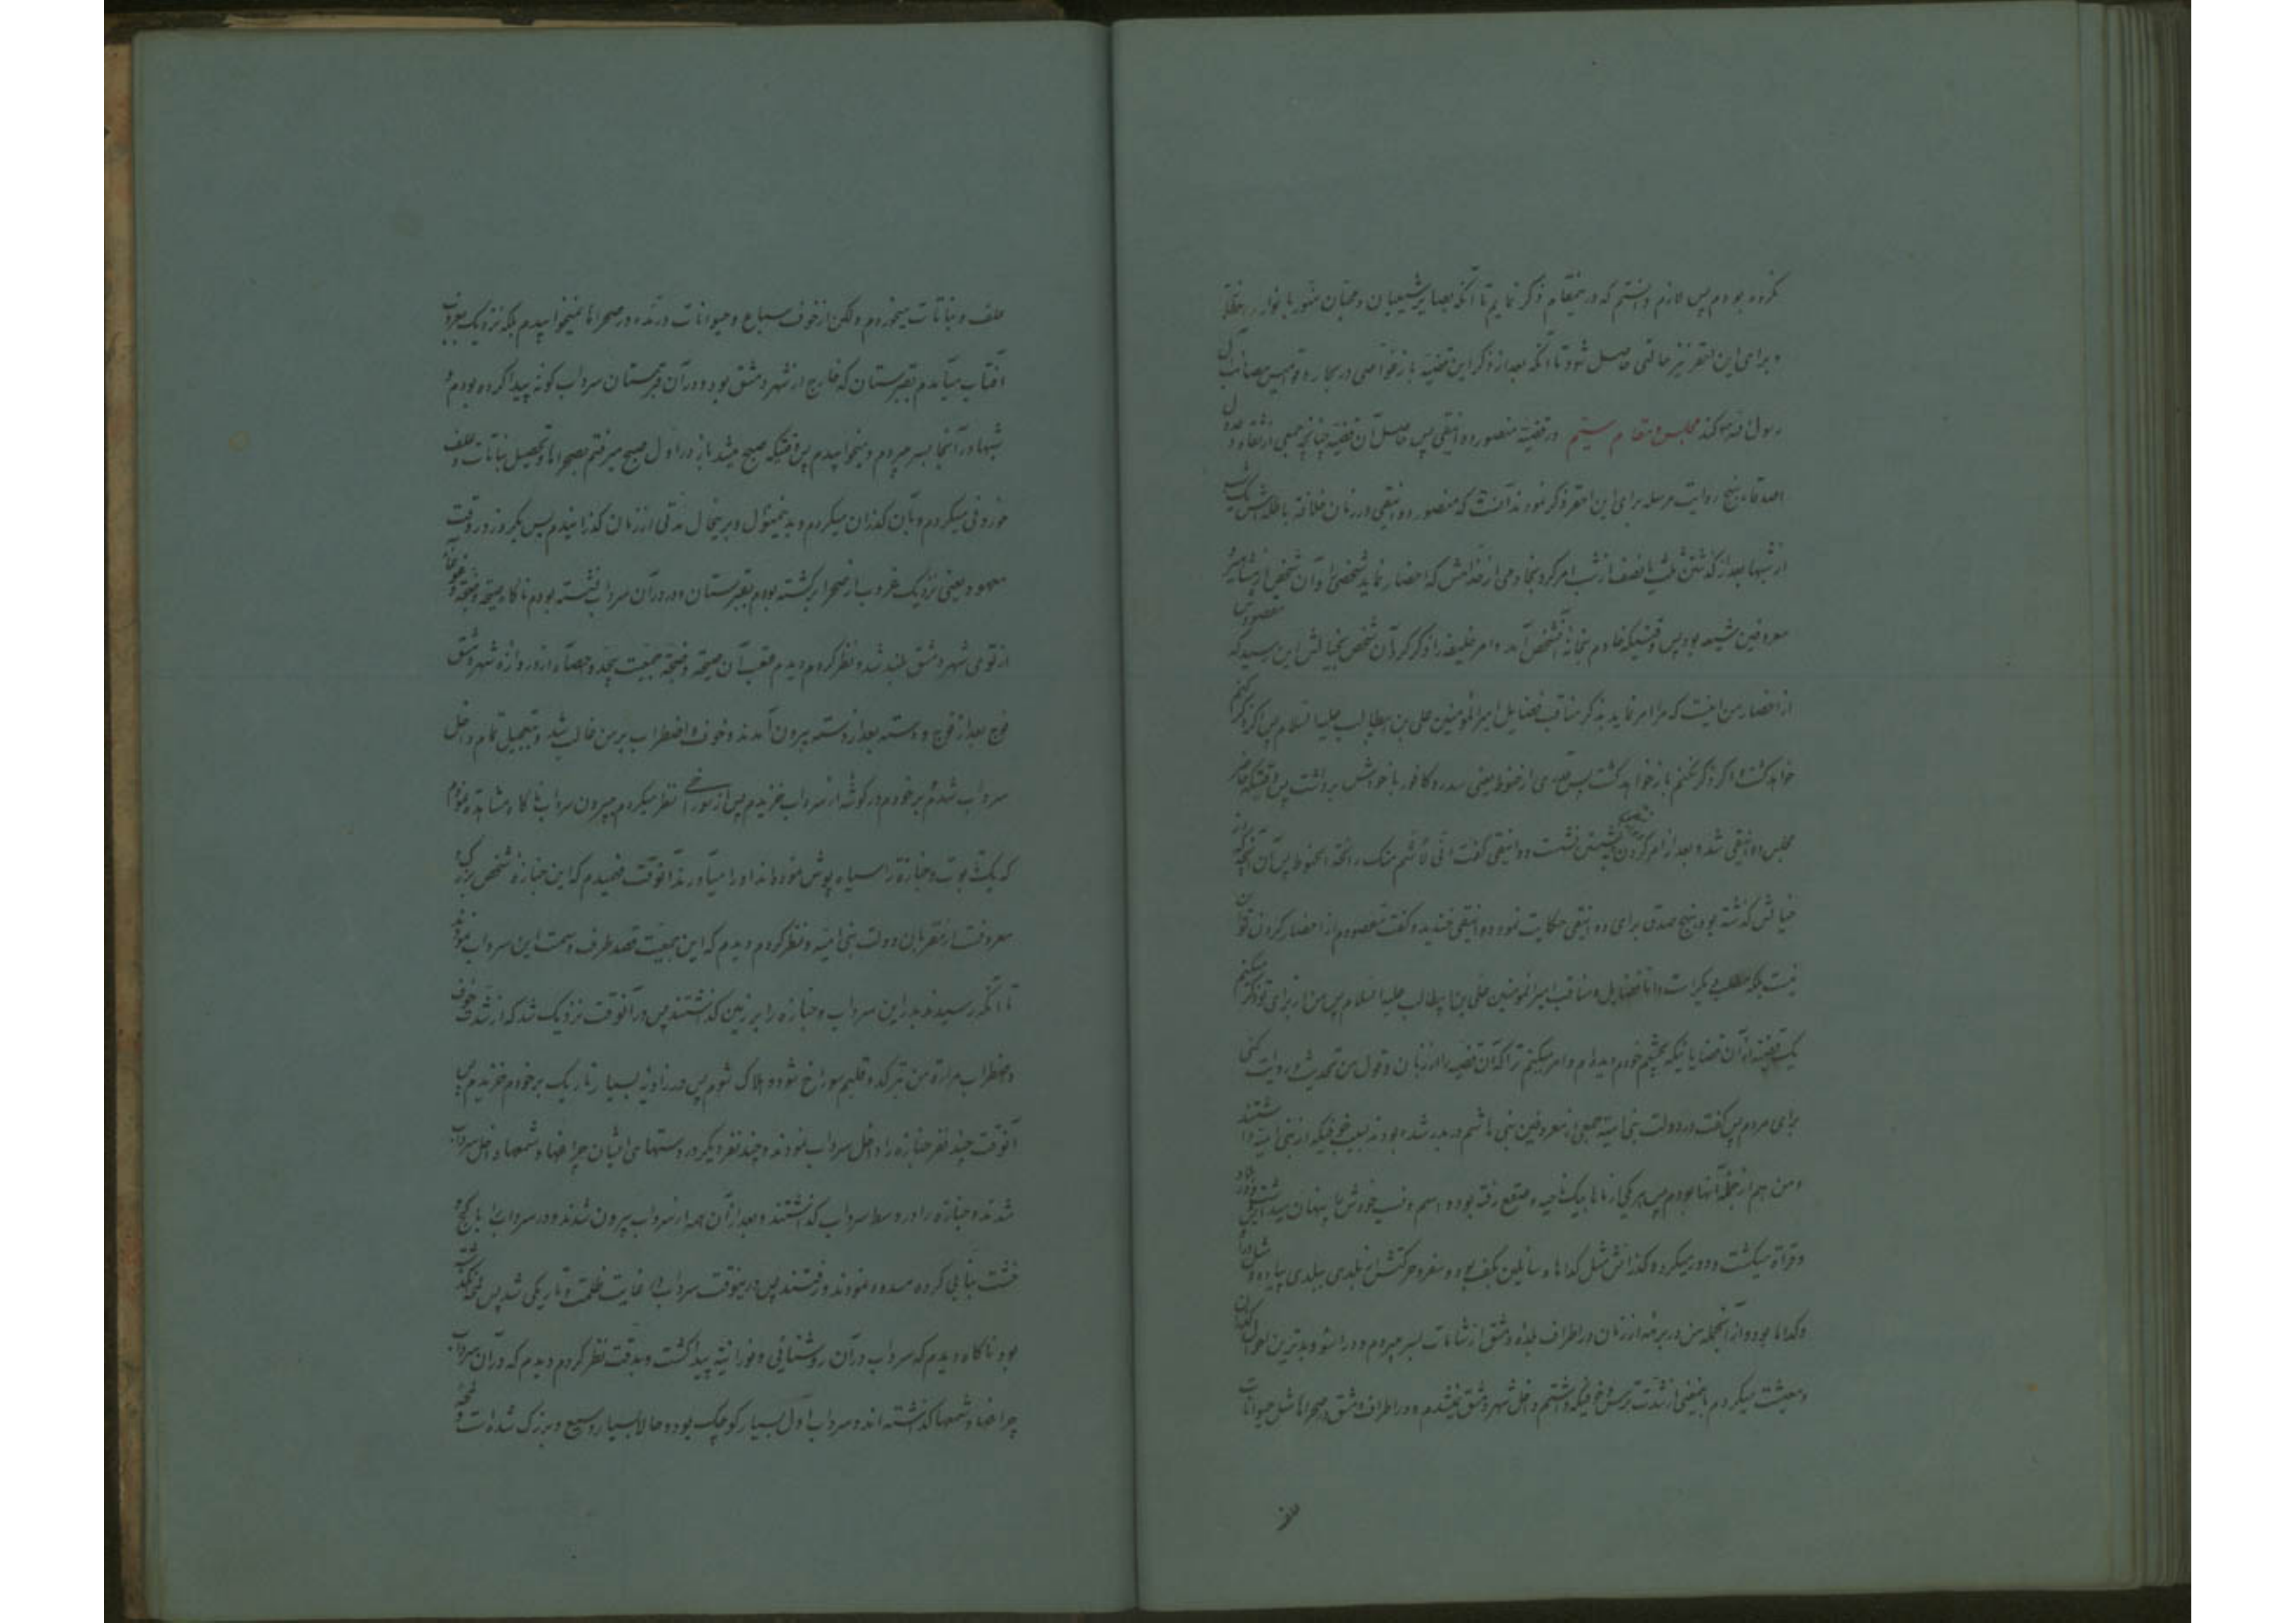 نکرده بودم پس لازم دانستم که در اینمقام ذکر نمایم تا آنکه بصایر شیعیان و محبان منور بانوار
و برای این احقر نیز حالتی حاصل شود تا آنکه بعد از ذکر این قضیه باز خواصی در بحار و قوامیس مصائب آل
رسول الله صلی کند مجلس و مقام سیم در قضیه منصور دوانیقی پس حاصل آن قضیه چنانچه جمعی از ثقاه و عدول
اصدقاء بنهج روایت مرسله برای این احقر ذکر نمودند آنست که منصور دوانیقی در زمان خلافة باطله‌اش یک شب
از شبها بعد از گذشتن ثلث یا نصف از شب امر کرد بخادمی از خدامش که احضار نماید شخصی را و آن شخص از مشاهیر و
معروفین شیعه بود پس وقتیکه خادم بخانه آنشخص آمد و امر خلیفه را ذکر کرد آن شخص بخیالش این رسید که مقصودش
از احضار من اینست که مرا امر نماید بذکر مناقب و فضایل امیر المؤمنین علی بن ابیطالب علیه السلام پس اگر ذکر کنم
خواهد کشت و اگر ذکر نکنم باز خواهد کشت پس قدری از حنوط یعنی سدر و کافور با خودش برداشت پس وقتیکه حاضر
مجلس دوانیقی شد و بعد از امر کردن بنشستن نشست دوانیقی گفت انی لاشم منک رائحة الحنوط پس آن آنچه که در
خیالش گذشته بود بنهج صدق برای دوانیقی حکایت نمود دوانیقی خندید و گفت مقصودم از احضار کردن تو آن
نیست بلکه مطلب دیگر است و اما فضایل و مناقب امیر المؤمنین علی بن ابیطالب علیه السلام پس من از برای تو ذکر میکنم
یک قضیه از آن قضایائیکه بچشم خودم دیده‌ام و امر میکنم ترا که آن قضیه را از زبان و قول من تحدیث و روایت کنی
برای مردم پس گفت در دولت بنی امیه جمعی از معروفین بنی هاشم در بدر شده بودند بسبب خوفیکه از بنی امیه داشتند
و من هم از جمله آنها بودم پس هر یکی از ماها بیک ناحیه و صقع رفته بوده اسم و نسب خودش را پنهان میداشت و در
و قراة میگشت و دور میکرد و گذرانش مثل گداها و سائلین بکف بود و سفر و حرکتش از بلدی ببلدی پیاده و مثل
و گداها بوده و از آنجمله من در برهه از زمان در اطراف بلده دمشق از شامات بسر میبردم و در اسوء و بدترین احوال گذران
و معیشت میکردم باینمعنی از شدت ترس و خوفیکه داشتم داخل شهر دمشق نمیشدم و در اطراف دمشق در صحراها مثل حیوانات
علف
علف و نباتات میخوردم ولکن از خوف سباع و حیوانات درنده در صحراها نمیخوابیدم بلکه نزدیک بغروب
آفتاب میآمدم بقبرستان که خارج از شهر دمشق بود و در آن قبرستان سرداب کونه پیدا کرده بودم و
شبها در آنجا بسر میبردم و میخوابیدم پس وقتیکه صبح میشد باز در اول صبح میرفتم بصحراها و تحصیل نباتات و علف
خوردنی میکردم و بآن گذران میکردم و بدینمنوال و بر اینحال مدتی از زمان گذرانیدم پس یکروز در وقت
معهود یعنی نزدیک غروب از صحرا برگشته بودم بقبرستان و در آن سرداب نشسته بودم ناگاه صیحه و ضجه و غوغا
از توی شهر دمشق بلند شد و نظر کردم دیدم عقب آن صیحه و ضجه جمعیت بیحد و احصاء از دروازه شهر دمشق
فوج بعد از فوج و دسته بعد از دسته بیرون آمدند و خوف و اضطراب بر من غالب شد و بتعجیل تمام داخل
سرداب شدم و بر خودم در گوشه از سرداب خزیدم پس از سوراخی نظر میکردم ببیرون سرداب ناگاه مشاهده نمودم
که یک تابوت و جنازه را سیاه پوش نموده‌اند او را میآورند آنوقت فهمیدم که این جنازه شخص بزرگ و
معروفست از مقربان دولت بنی امیه و نظر کردم دیدم که این جمعیت قصد طرف و سمت این سرداب نمودند
تا آنکه رسیدند بدر این سرداب و جنازه را بر زمین گذاشتند پس در آنوقت نزدیک شد که از شدت خوف
و اضطراب مرارة من بترکد و قلبم سوراخ شود و هلاک شوم پس در زاویه بسیار تاریک بر خودم خزیدم پس
آنوقت چند نفر جنازه را داخل سرداب نمودند و چند نفر دیگر در دستهای ایشان چراغها و شمعها داخل سرداب
شدند و جنازه را در وسط سرداب گذاشتند و بعد از آن همه از سرداب بیرون شدند و در سرداب را با گچ و
خشت بنائی کرده مسدود نمودند و رفتند پس در اینوقت سرداب در غایت ظلمت و تاریکی شد پس لمحه نگذشته
بود ناگاه دیدم که سرداب در آن روشنائی و نورانیة پیدا گشت و بدقت نظر کردم دیدم که در آن سرداب
چراغها و شمعها گذاشته‌اند و سرداب اول بسیار کوچک بود و حالا بسیار وسیع و بزرگ شده است و